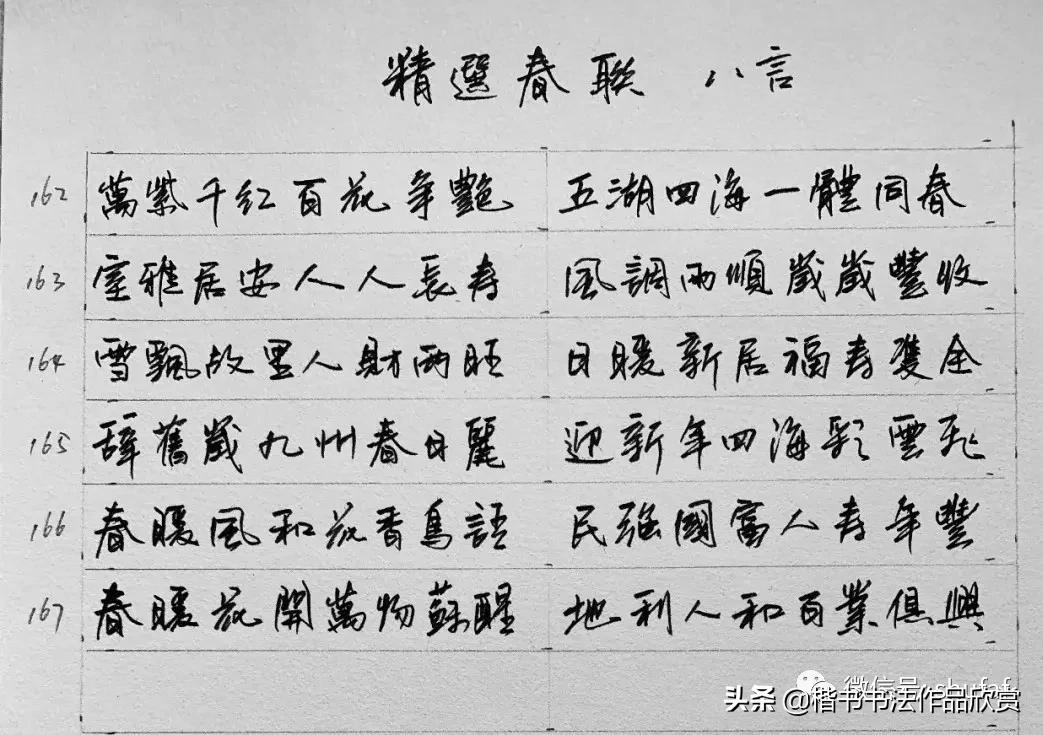 精選春聯 八言
162 萬紫千红百花争艷 五湖四海一體同春
163 室雅居安人人長寿 風調雨順歲歲豐收
164 雪飄故里人財兩旺 日暖新居福寿雙全
165 辞舊歲九州春日麗 迎新年四海彩雲飞
166 春暖風和花香鳥語 民强國富人寿年豐
167 春暖花開萬物蘇醒 地利人和百業俱興
微信号: shufaf
头条 @楷书书法作品欣赏